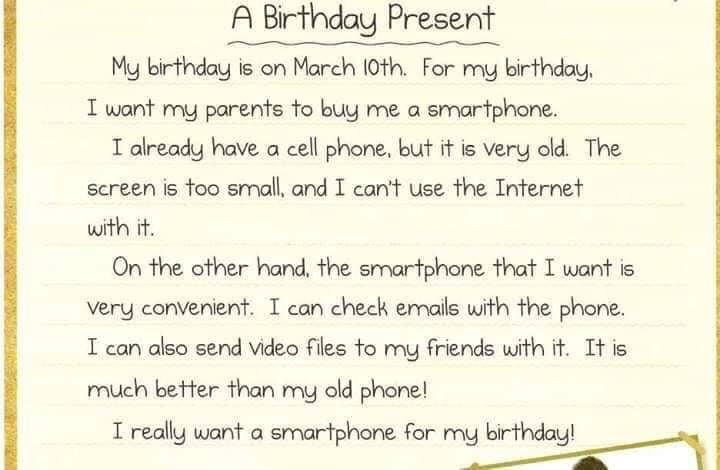 A Birthday Present
My birthday is on March 10th. For my birthday,
I want my parents to buy me a smartphone.
I already have a cell phone, but it is very old. The
screen is too small, and I can't use the Internet
with it.
On the other hand, the smartphone that I want is
very convenient. I can check emails with the phone.
I can also send video files to my friends with it. It is
much better than my old phone!
I really want a smartphone for my birthday!